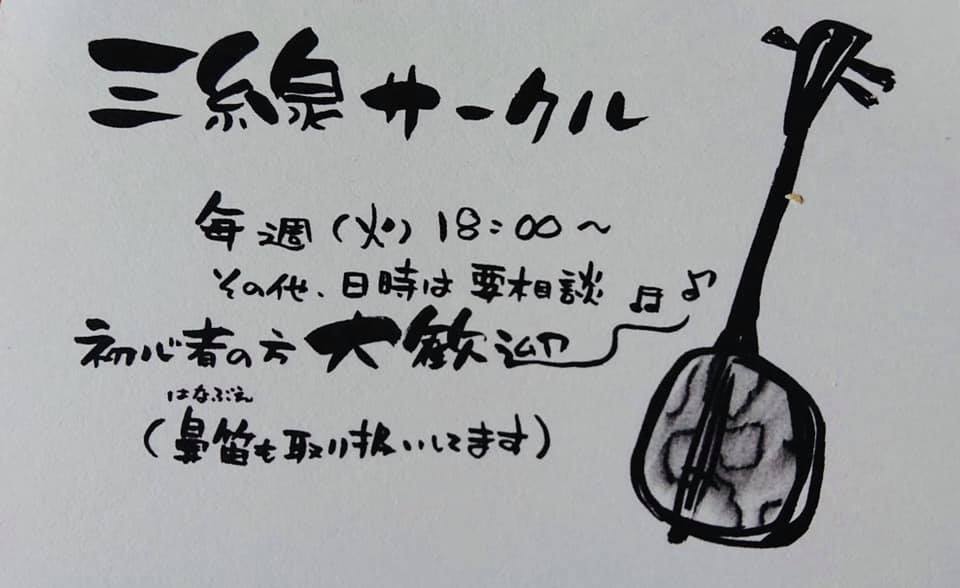 三線サークル
毎週(火)18:00～
その他、日時は要相談
初心者の方大歓迎
はなぶえ
(鼻笛も取り扱いしてます)